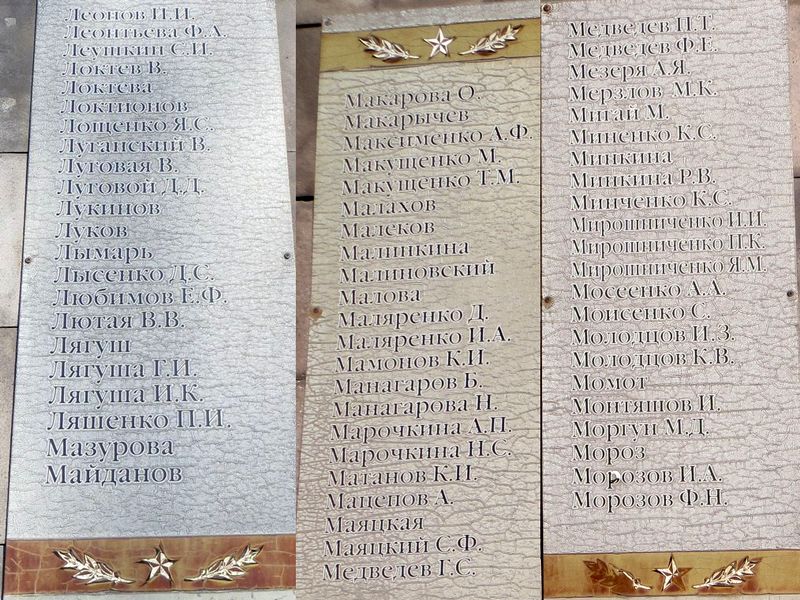 Леонов П.И.
Леонтьева Ф.А.
Леушкин С.И.
Локтев В.
Локтева
Локтионов
Лощенко Я.С.
Луганский В.
Луговая В.
Луговой Д.Д.
Лукинов
Луков
Лымарь
Лысенко Д.С.
Любимов Е.Ф.
Лютая В.В.
Лягуш
Лягуша Г.И.
Лягуша И.К.
Ляшенко П.И.
Мазурова
Майданов
Макарова О.
Макарычев
Максименко А.Ф.
Макущенко М.
Макущенко Т.М.
Малахов
Малеков
Малинкина
Малиновский
Малова
Маляренко Д.
Маляренко И.А.
Мамонов К.И.
Манагаров Б.
Манагарова Н.
Марочкина А.П.
Марочкина Н.С.
Матанов К.И.
Мацепов А.
Маяцкая
Маяцкий С.Ф.
Медведев Г.С.
Медведев П.Т.
Медведев Ф.Е.
Мезеря А.Я.
Мерзлов М.К.
Мигай М.
Миненко К.С.
Минкина
Минкина Р.В.
Минченко К.С.
Мирошниченко И.И.
Мирошниченко П.К.
Мирошниченко Я.М.
Мосеенко А.А.
Моисенко С.
Молодцов И.З.
Молодцов К.В.
Момот
Монтяшов И.
Моргун М.Д.
Мороз
Морозов И.А.
Морозов Ф.Н.